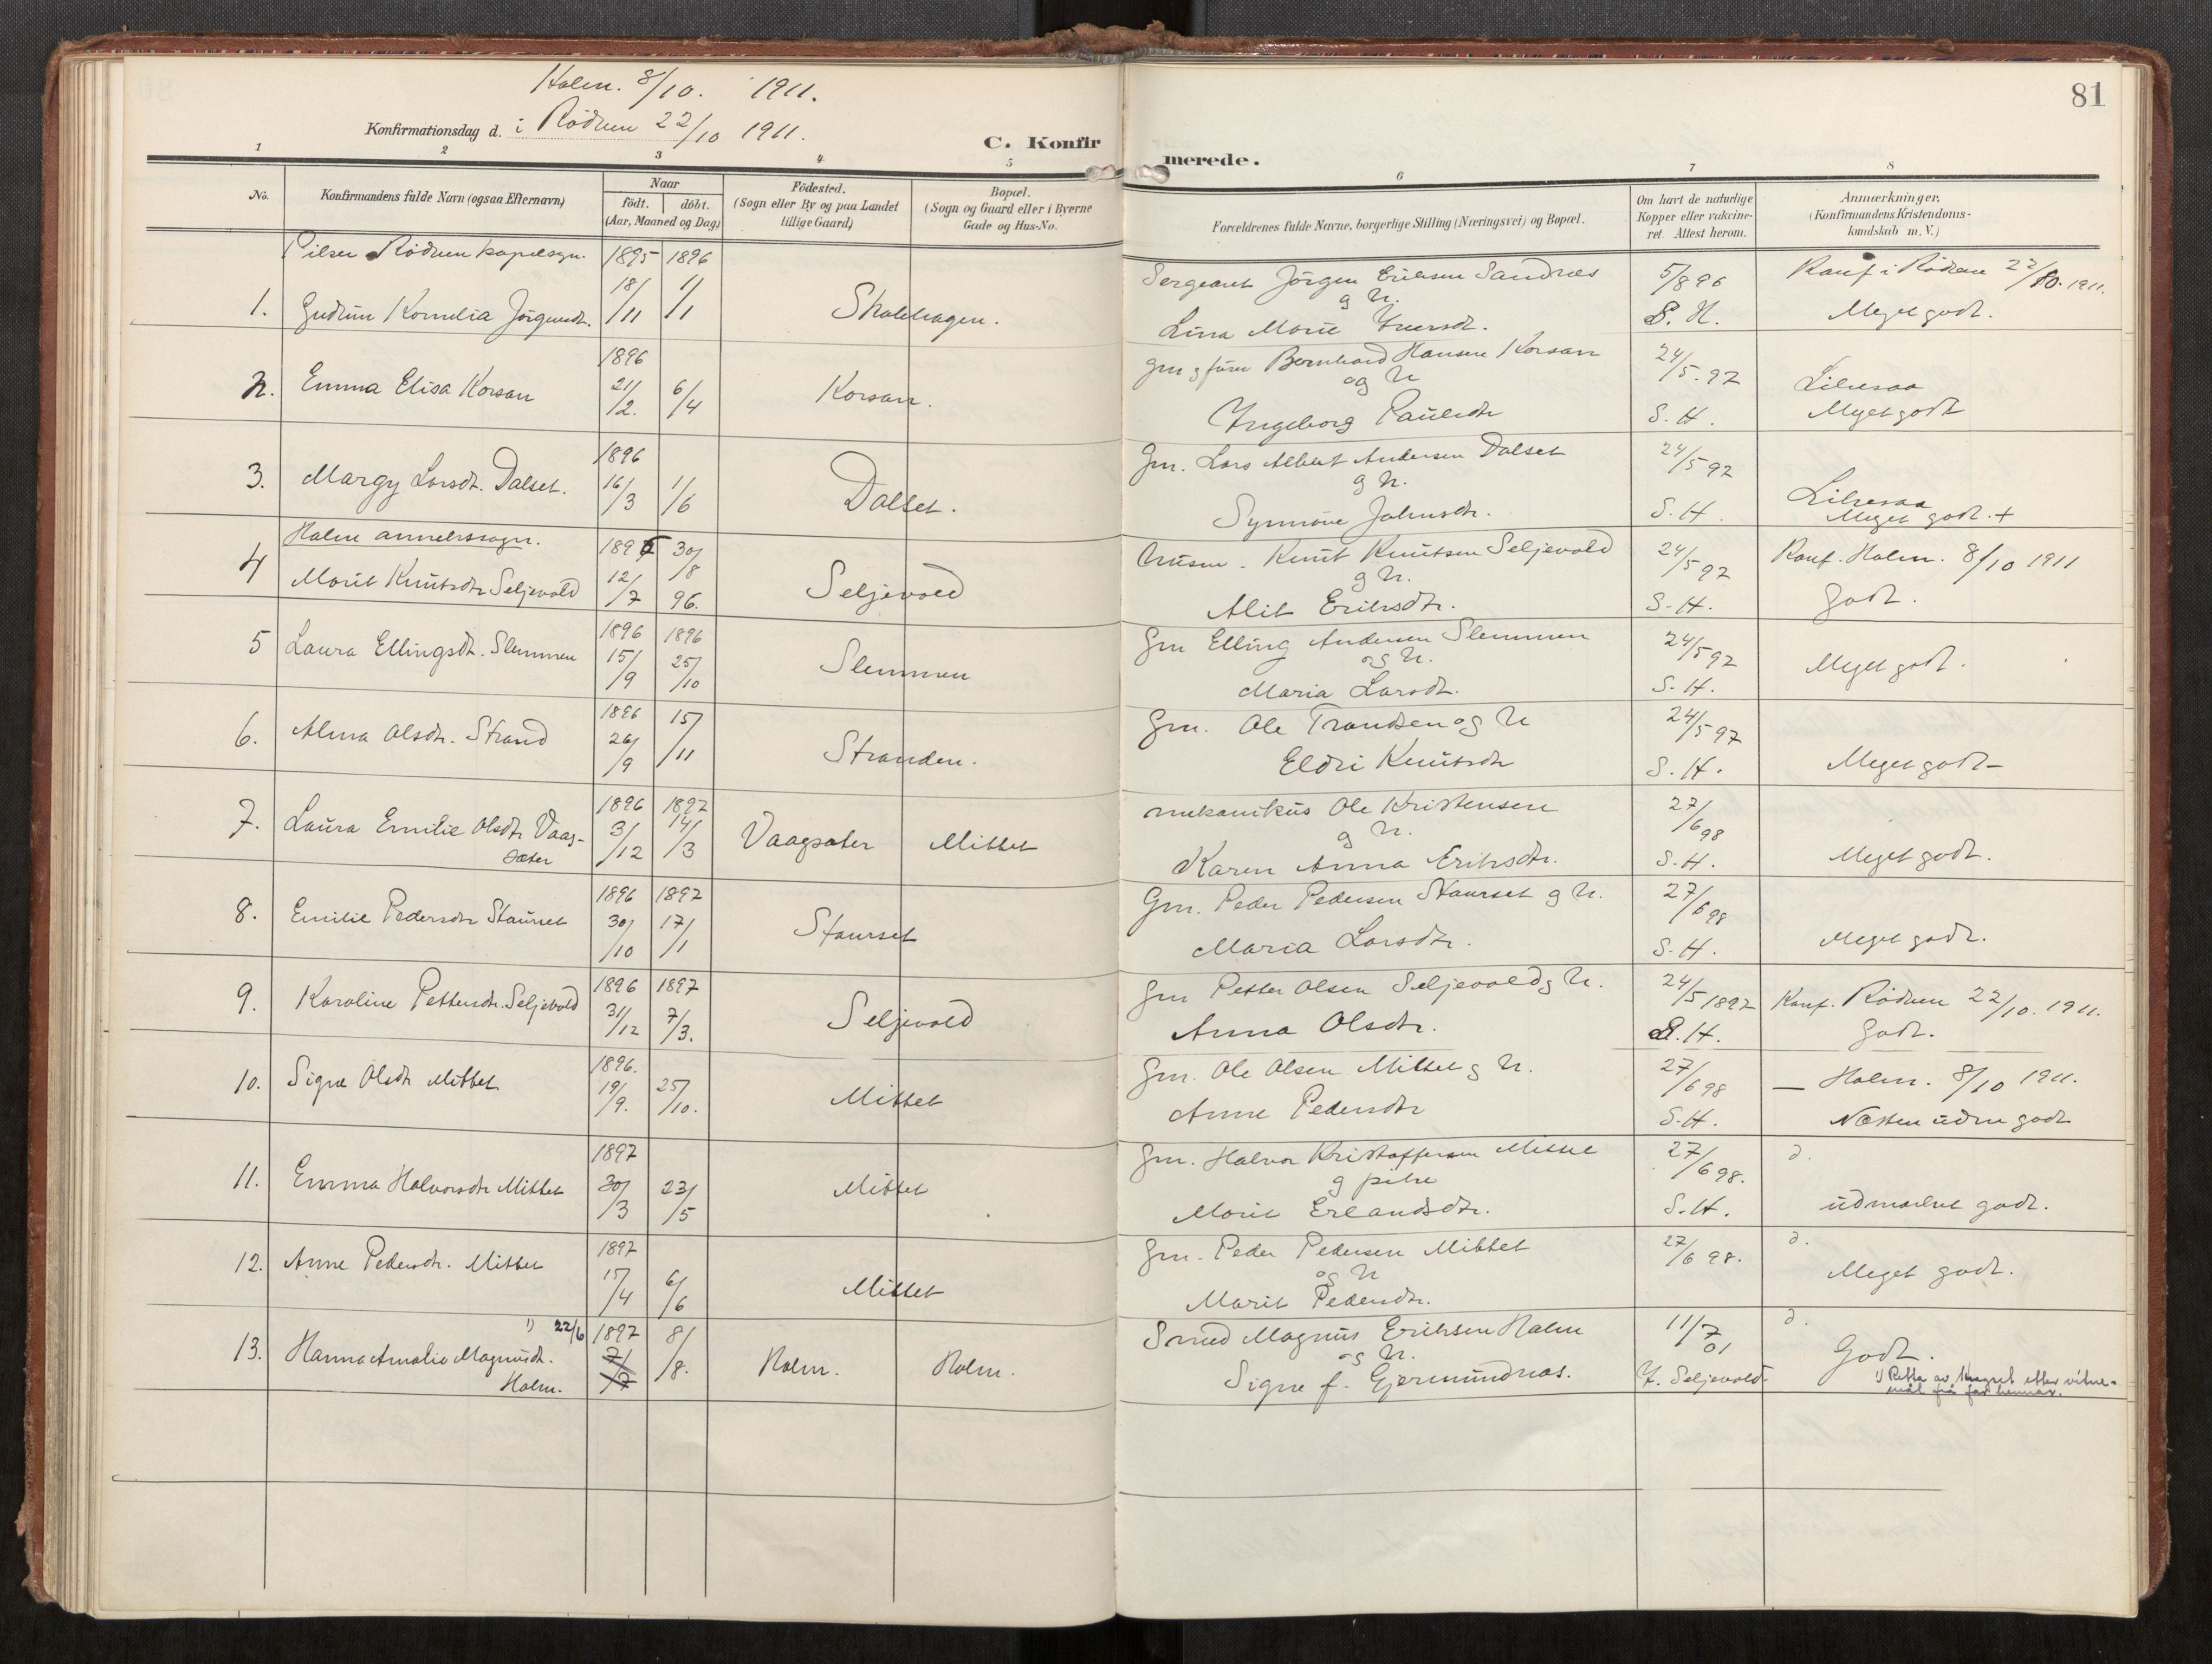 81
Holm. 8/10. 1911.
Konfirmationsdag d. i Rödven 22/10 1911.
C. Konfirmerede.
1 2 3 4 5 6 7 8
No.
Konfirmandens fulde Navn (ogsaa Efternavn)
Naar
födt. döbt.
(Aar, Maaned og Dag)
Födested.
(Sogn eller By og paa Landet
tillige Gaard)
Bopæl.
(Sogn og Gaard eller i Byerne
Gade og Hus-No.
Forældrenes fulde Navne, borgerlige Stilling (Næringsvei) og Bopæl.
Om havt de naturlige
Kopper eller vakcine-
ret. Attest herom.
Anmærkninger.
(Konfirmandens Kristendoms-
kundskab m. V.)
Piker Rödven kapelsogn.
1. Gudrun Kornelia Jörgensdt.
1895 18/11
1896 1/1
Skalehagen.
Sergeant Jörgen Eriksen Sandnes
g h.
Lina Marie Iversdt.
5/8 96
S. H.
Konf i Rödven 22/10. 1911.
Meget godt.
2. Emma Elisa Korsan
1896 21/2.
6/4
Korsan.
Gm g förer Bernhard Hansen Korsan
og h
Ingeborg Paulsdtr
24/5. 97
S. H.
Lilresaa
Meget godt
3. Margy Larsdt. Dalset.
1896 16/3
1/6
Dalset.
Gm. Lars Albert Andersen Dalset
g h.
Synnöve Johnsdtr.
24/5 97
S. H.
Lilresaa
Meget godt. +
Holm annekssogn.
4 Marit Knutsdtr Seljevold
1896 12/7
30/8 96.
Seljevold
Husm. Knut Knutsen Seljevold
g h.
Alit Eriksdtr.
24/5 97
S. H.
Konf. Holm. 8/10 1911
Godt.
5 Laura Ellingsdt. Slemmen
1896 15/9
1896 25/10
Slemmen
Gm Elling Andersen Slemmen
og h.
Maria Larsdt.
24/5 97
S. H.
Meget godt.
6. Alma Olsdtr. Strand
1896 26/9
15/11
Stranden.
Gm. Ole Trondsen og h
Eldri Knutsdtr
24/5 97
S. H.
Meget godt-
7. Laura Emilie Olsdtr Vaag-
sæter
1896 3/12
1897 14/3
Vaagsæter
Mittet
mekanikus Ole Kristensen
g h.
Karen Anna Eriksdtr.
27/6 98
S. H.
Meget godt.
8. Emilie Pedersdtr Staurset
1896 30/10
1897 17/1
Staurset
Gm. Peder Pedersen Staurset g h.
Maria Larsdtr.
27/6 98
S. H.
Meget godt.
9. Karoline Pettersdtr. Seljevold
1896 31/12
1897 7/3.
Seljevold
Gm Petter Olsen Seljevold g h.
Anna Olsdtr.
24/5 1897
S. H.
Konf. Rödven 22/10. 1911.
Godt.
10. Signe Olsdtr Mittet
1896. 19/9.
25/10.
Mittet
Gm. Ole Olsen Mittet g h.
Anne Pedersdtr
27/6 98
S. H.
— Holm. 8/10 1911.
Næsten udm godt
11. Emma Halvorsdtr Mittet
1897 30/3
23/5
Mittet
Gm. Halvor Kristoffersen Mittet
g pike
Marit Erlandsdtr.
27/6 98.
S. H.
d.
udmærket godt.
12. Anne Pedersdtr. Mittet
1897 15/4
6/6
Mittet
Gm. Peder Pedersen Mittet
og h
Marit Pedersdtr.
27/6 98.
d.
Meget godt.
13. Hanna Amalie Magnusdt.
Holm.
1) 22/6 1897 7/7
8/8.
Holm.
Holm.
Smed Magnus Eriksen Holm
og h.
Signe f. Gjermundnæs.
11/7 01
Y. Seljevold.
d.
Godt.
1) Retta av etter vitne-
mål frå far hennar.